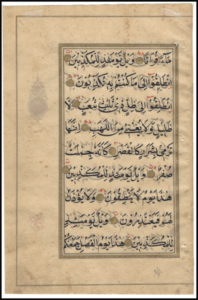 مَاءً فُرَاتًا وَيْلٌ يَوْمَئِذٍ لِلْمُكَذِّبِينَ
انْطَلِقُوا إِلَى مَا كُنْتُمْ بِهِ تُكَذِّبُونَ
انْطَلِقُوا إِلَى ظِلٍّ ذِي ثَلٰثِ شُعَبٍ لَا
ظَلِيلٍ وَلَا يُغْنِي مِنَ اللَّهَبِ إِنَّهَا
تَرْمِي بِشَرَرٍ كَالْقَصْرِ كَأَنَّهُ جِمٰلَتٌ
صُفْرٌ وَيْلٌ يَوْمَئِذٍ لِلْمُكَذِّبِينَ
هٰذَا يَوْمُ لَا يَنْطِقُونَ وَلَا يُؤْذَنُ
لَهُمْ فَيَعْتَذِرُونَ وَيْلٌ يَوْمَئِذٍ
لِلْمُكَذِّبِينَ هٰذَا يَوْمُ الْفَصْلِ جَمَعْنٰكُمْ